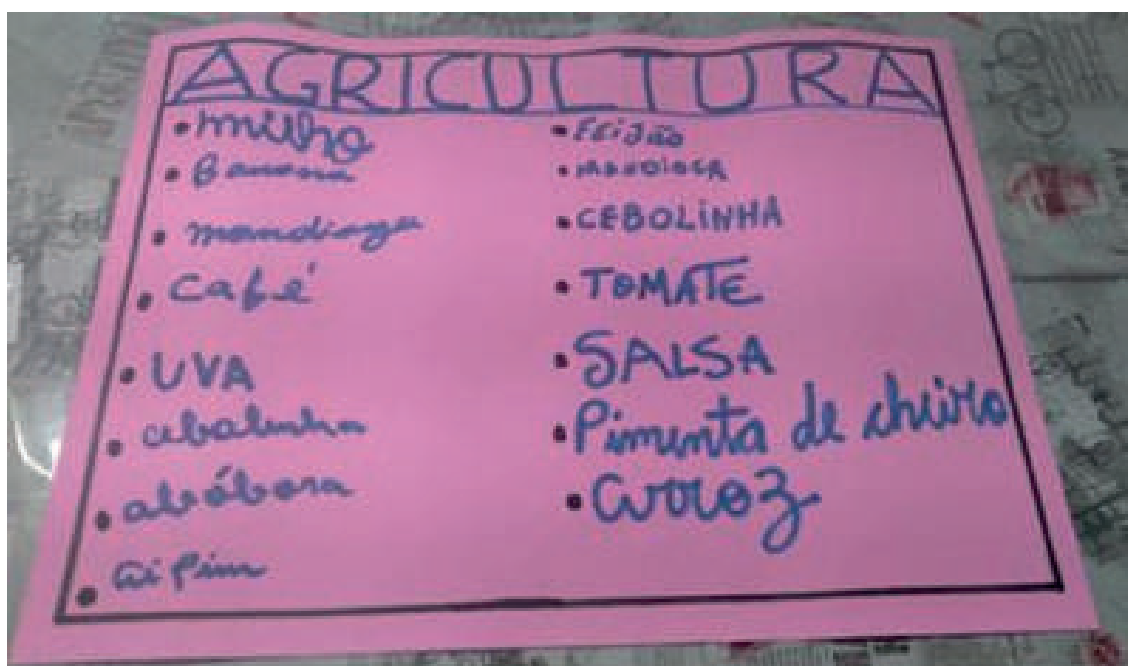 AGRICULTURA
• milho
• Banana
• mandioga
• café
• UVA
• cebolinha
• abóbora
• aipim
• FEiJão
• MANDiOCA
• CEBOLiNHA
• TOMATE
• SALSA
• Pimenta de cheiro
• arroz